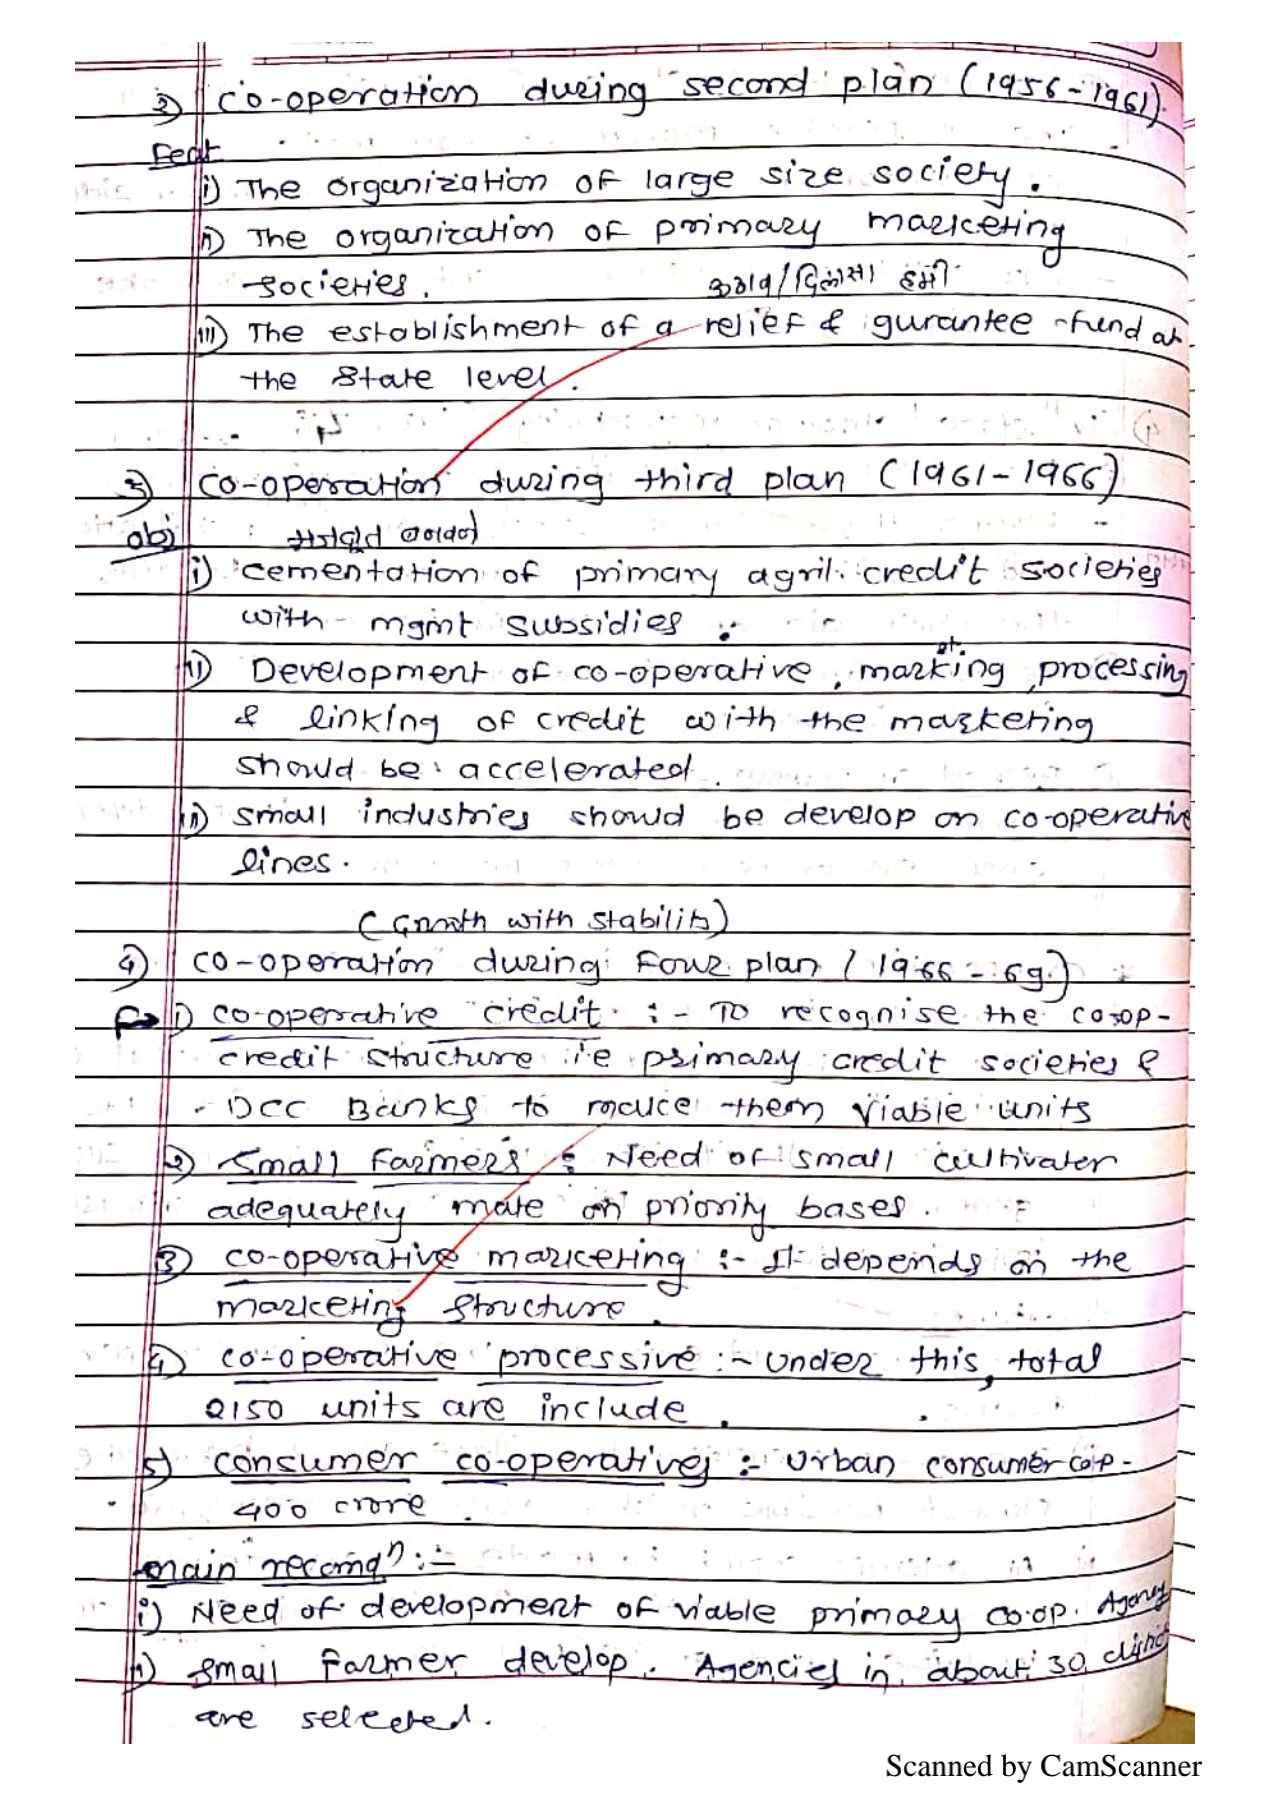 2) co-operation during second plan (1956-1961).
Feat
i) The organization of large size society.
ii) The organization of primary marketing
societies.
हमी
iii) The establishment of a relief & gurantee fund at
the state level.
3) co-operation during third plan (1961-1966)
obj
i) cementation of primary agril. credit societies
with mgmt subsidies.
ii) Development of co-operative, marketing, processing
& linking of credit with the marketing
should be accelerated.
iii) small industries should be develop on co-operative
lines.
(Growth with stability)
4) co-operation during Four plan (1966-69)
F→ i) co-operative credit :- To recognise the co-op-
credit structure i.e primary credit societies &
DCC Banks to make them viable units
2) Small Farmers : Need of small cultivater
adequately mate on priority bases.
3) co-operative marketing :- It depends on the
marketing structure.
4) co-operative processive :- Under this, total
2150 units are include.
5) consumer co-operatives :- Urban consumer cop-
400 crore.
main recomdⁿ :-
i) Need of development of viable primary co.op. Agency
ii) small farmer develop. Agencies in about 30 district
are selected.
Scanned by CamScanner